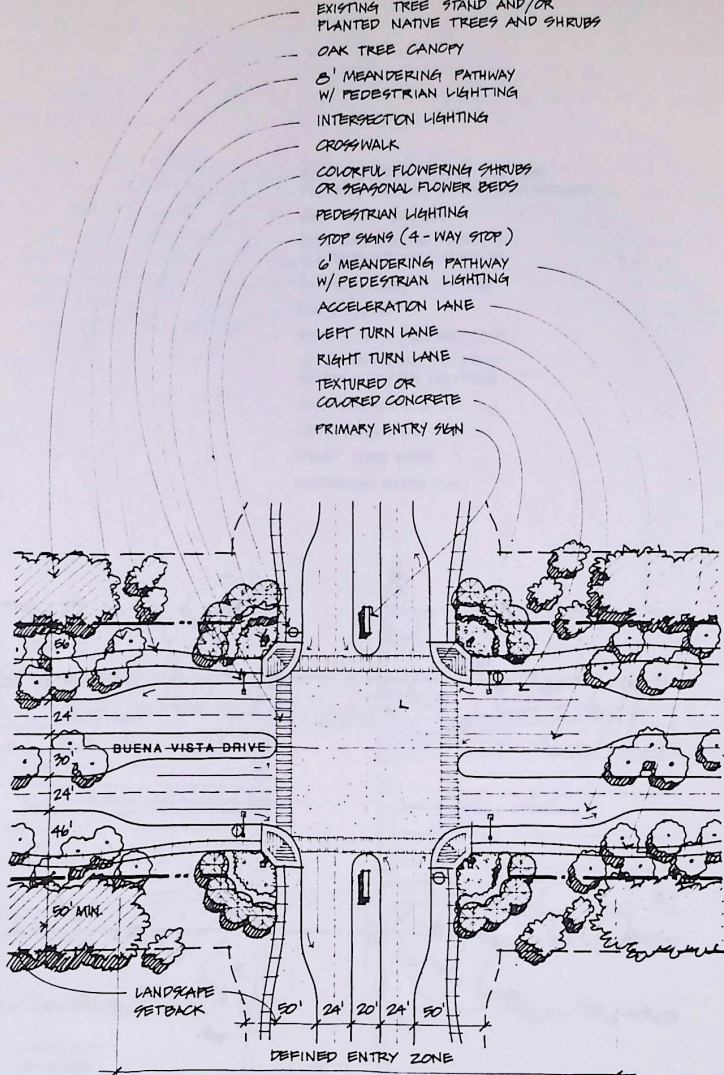 EXISTING TREE STAND AND/OR
PLANTED NATIVE TREES AND SHRUBS
OAK TREE CANOPY
8' MEANDERING PATHWAY
W/ PEDESTRIAN LIGHTING
INTERSECTION LIGHTING
CROSSWALK
COLORFUL FLOWERING SHRUBS
OR SEASONAL FLOWER BEDS
PEDESTRIAN LIGHTING
STOP SIGNS (4-WAY STOP)
6' MEANDERING PATHWAY
W/ PEDESTRIAN LIGHTING
ACCELERATION LANE
LEFT TURN LANE
RIGHT TURN LANE
TEXTURED OR
COLORED CONCRETE
PRIMARY ENTRY SIGN
56'
24'
BUENA VISTA DRIVE
30'
24'
46'
50' MIN.
LANDSCAPE
SETBACK
50' 24' 20' 24' 50'
DEFINED ENTRY ZONE